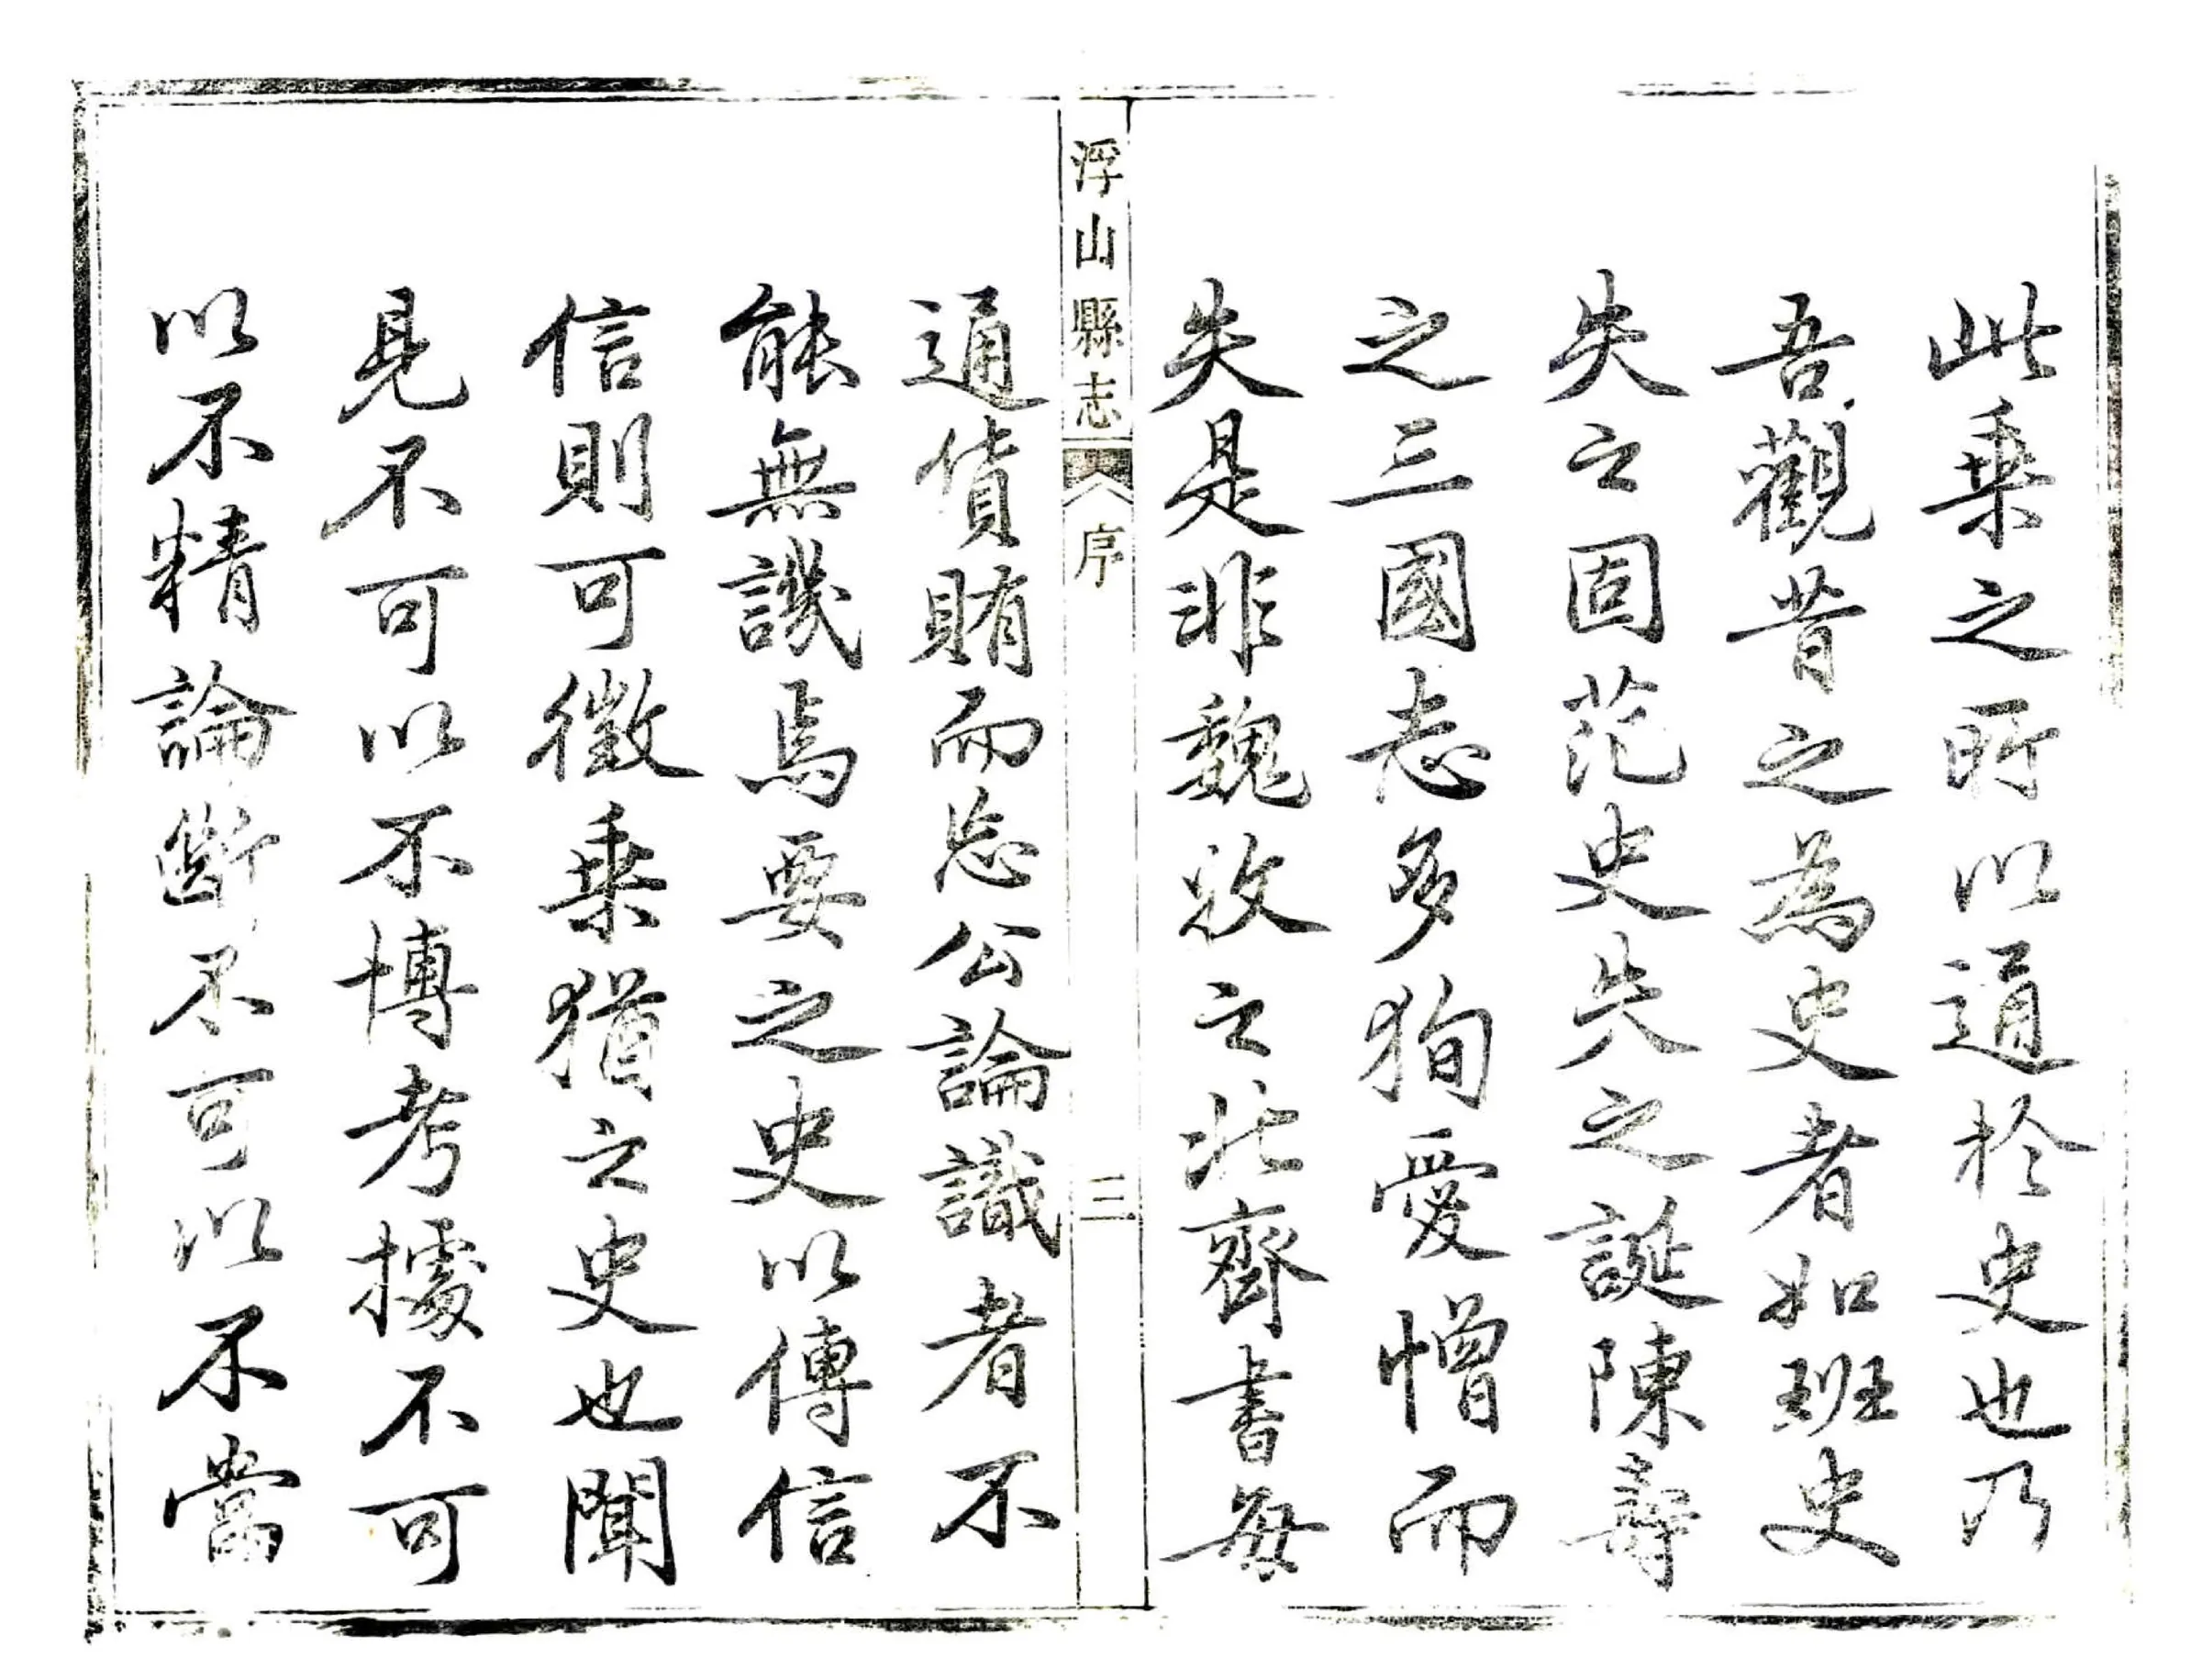 此乗之所以通於史也乃
吾觀昔之為史者如班史
失之固范史失之誕陳壽
之三國志多狥愛憎而
失是非魏收之北齊書每
浮山縣志
序
三
通貨賄而忘公論識者不
能無譏焉要之史以傳信
信則可徵乗猶之史也聞
見不可以不博考據不可
以不精論斷不可以不當